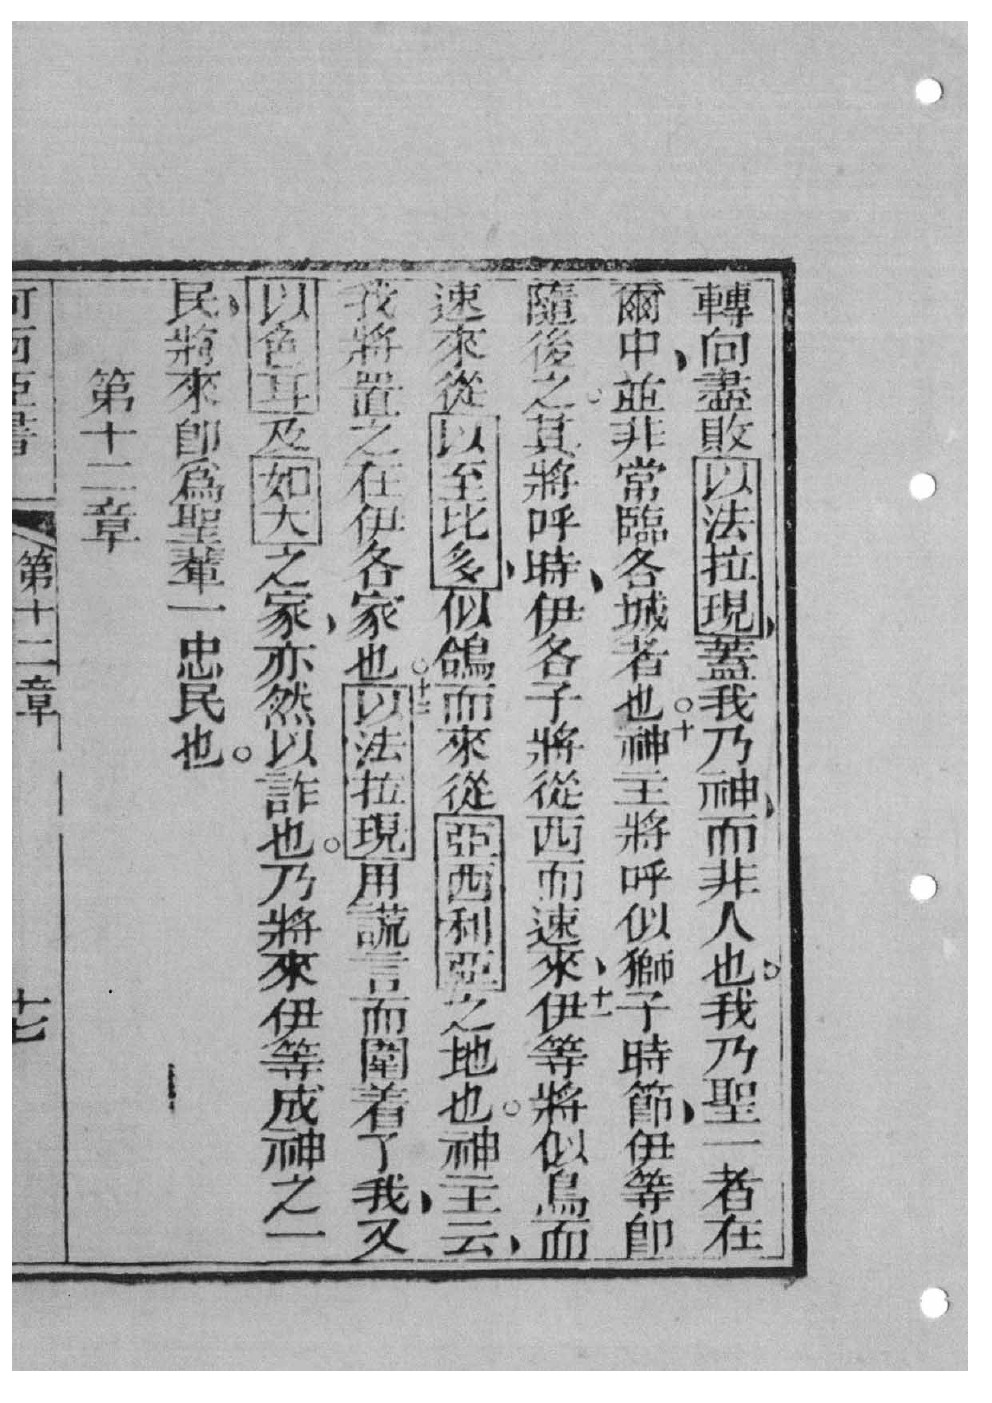 轉向盡敗以法拉現蓋我乃神而非人也。我乃聖一者在
爾中、並非常臨各城者也。十神主將呼似獅子時節、伊等卽
隨後之。其將呼時、伊各子將從西而速來、十一伊等將似鳥而
速來從以至比多、似鴿而來從亞西利亞之地也。神主云、
我將置之在伊各家也。十二以法拉現用謊言而圍着了我、又
以色耳及如大之家、亦然以詐也。乃將來伊等成神之一
民、將來卽爲聖輩一忠民也。
第十二章
何西亞書
第十二章
十七